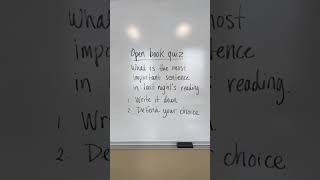 Open book quiz
What is the most
important sentence
in last night's reading.
1. Write it down
2. Defend your choice